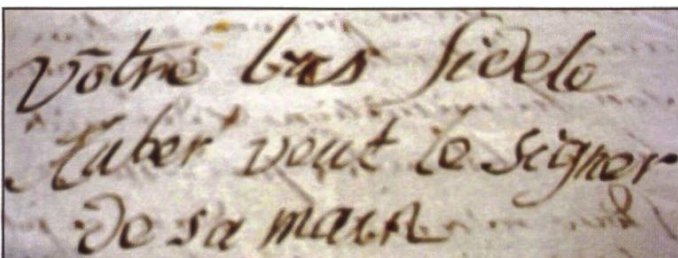 vôtre bras fidele
Auber veut le signer
de sa main